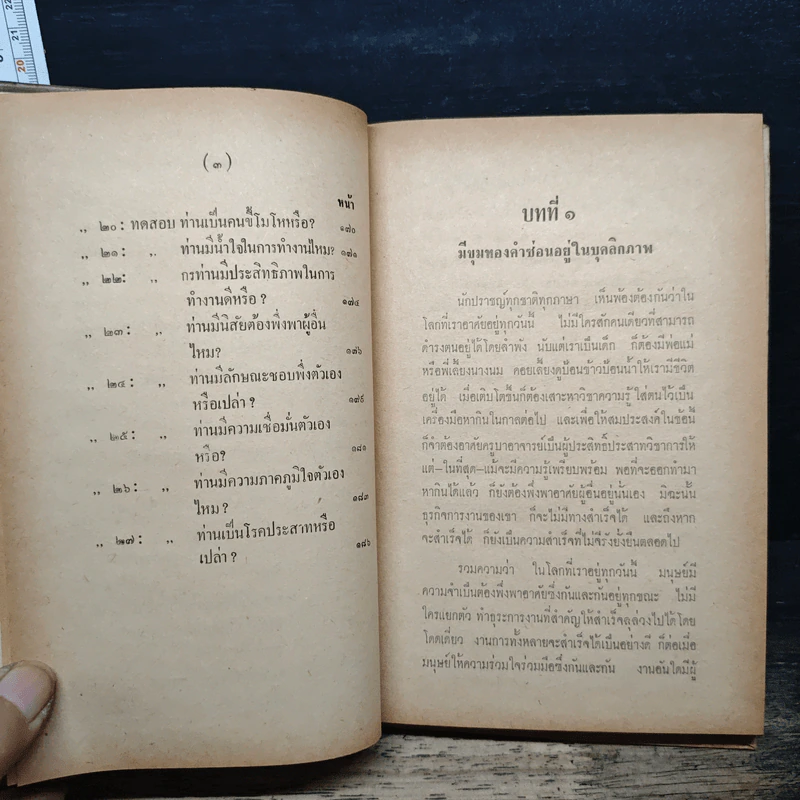 22
21
20
(๓)
หน้า
„ ๒๐ : ทดสอบ ท่านเป็นคนขี้โมโหหรือ? ๑๗๐
„ ๒๑ : „ ท่านมีน้ำใจในการทำงานไหม? ๑๗๑
„ ๒๒ : „ กรท่านมีประสิทธิภาพในการ
ทำงานดีหรือ ? ๑๗๔
„ ๒๓ : „ ท่านมีนิสัยต้องพึ่งพาผู้อื่น
ไหม? ๑๗๖
„ ๒๔ : „ ท่านมีลักษณะชอบพึ่งตัวเอง
หรือเปล่า ? ๑๗๙
„ ๒๕ : „ ท่านมีความเชื่อมั่นตัวเอง
หรือ? ๑๘๑
„ ๒๖ : „ ท่านมีความภาคภูมิใจตัวเอง
ไหม ? ๑๘๓
„ ๒๗ : „ ท่านเป็นโรคประสาทหรือ
เปล่า ? ๑๘๖
บทที่ ๑
มีขุมทองคำซ่อนอยู่ในบุคลิกภาพ
นักปราชญ์ทุกชาติทุกภาษา เห็นพ้องต้องกันว่าใน
โลกที่เราอาศัยอยู่ทุกวันนี้ ไม่มีใครสักคนเดียวที่สามารถ
ดำรงตนอยู่ได้โดยลำพัง นับแต่เราเป็นเด็ก ก็ต้องมีพ่อแม่
หรือพี่เลี้ยงนางนม คอยเลี้ยงดูป้อนข้าวป้อนน้ำให้เรามีชีวิต
อยู่ได้ เมื่อเติบโตขึ้นก็ต้องเสาะหาวิชาความรู้ใส่ตนไว้เป็น
เครื่องมือหากินในกาลต่อไป และเพื่อให้สมประสงค์ในข้อนี้
ก็จำต้องอาศัยครูบาอาจารย์เป็นผู้ประสิทธิ์ประสาทวิชาการให้
แต่–ในที่สุด–แม้จะมีความรู้เพรียบพร้อม พอที่จะออกทำมา
หากินได้แล้ว ก็ยังต้องพึ่งพาอาศัยผู้อื่นอยู่นั่นเอง มิฉะนั้น
ธุรกิจการงานของเขา ก็จะไม่มีทางสำเร็จได้ และถึงหาก
จะสำเร็จได้ ก็ยังเป็นความสำเร็จที่ไม่จีรังยั่งยืนตลอดไป
รวมความว่า ในโลกที่เราอยู่ทุกวันนี้ มนุษย์มี
ความจำเป็นต้องพึ่งพาอาศัยซึ่งกันและกันอยู่ทุกขณะ ไม่มี
ใครแยกตัว ทำธุระการงานที่สำคัญให้สำเร็จลุล่วงไปได้โดย
โดดเดี่ยว งานการทั้งหลายจะสำเร็จได้เป็นอย่างดี ก็ต่อเมื่อ
มนุษย์ให้ความร่วมใจร่วมมือซึ่งกันและกัน งานอันใดมีผู้